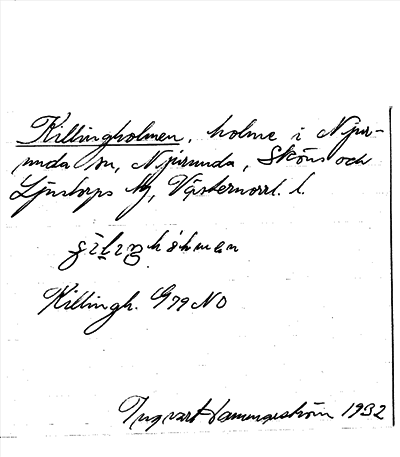 Killingholmen, holme i Njur-
unda sn, Njurunda, Sköns och
Ljustorps tg, Västernorrl. l.
Killingh. G79 NO
Ingvart Hammarström 1932